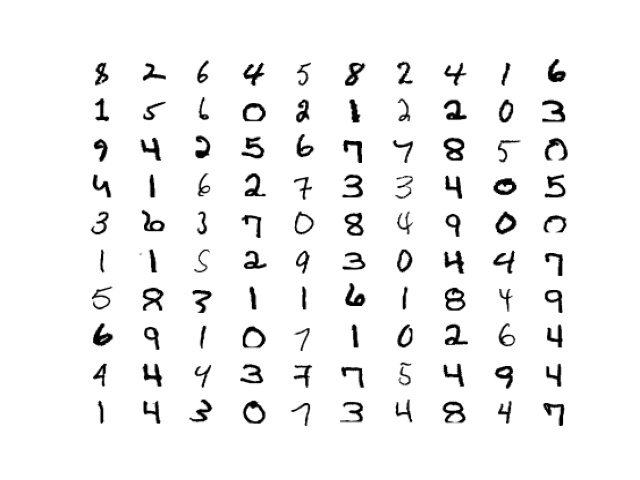 8 2 6 4 5 8 2 4 1 6
1 5 6 0 2 1 2 2 0 3
9 4 2 5 6 7 7 8 5 0
4 1 6 2 7 3 3 4 0 5
3 6 3 7 0 8 4 9 0 0
1 1 5 2 9 3 0 4 4 7
5 8 3 1 1 6 1 8 4 9
6 9 1 0 7 1 0 2 6 4
4 4 4 3 7 7 5 4 9 4
1 4 3 0 7 3 4 8 4 7